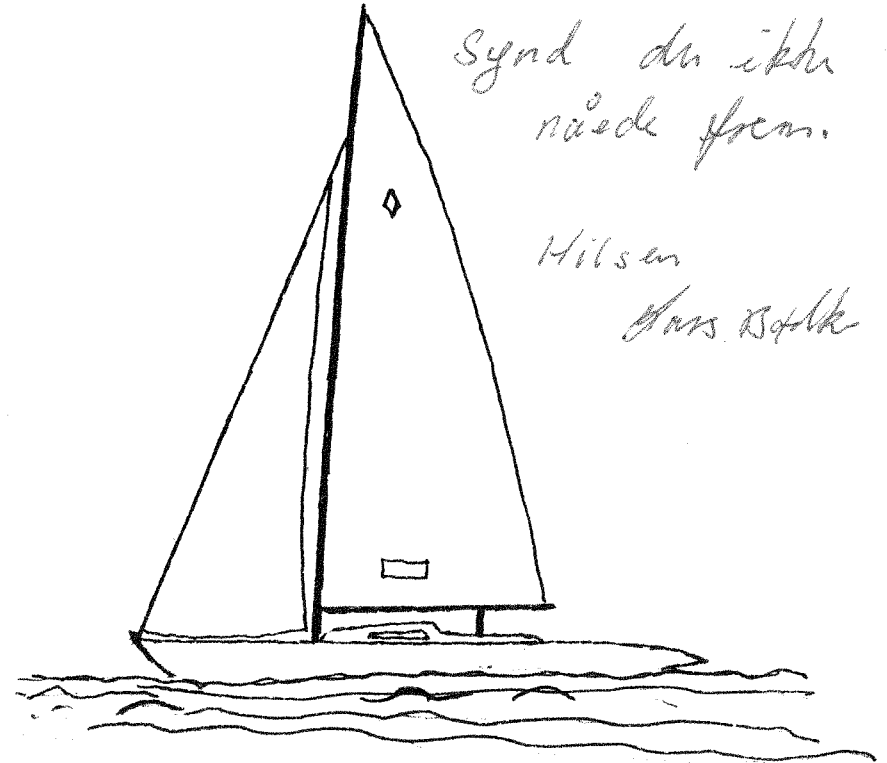 Synd du ikke
nåede frem.
Hilsen
Hans